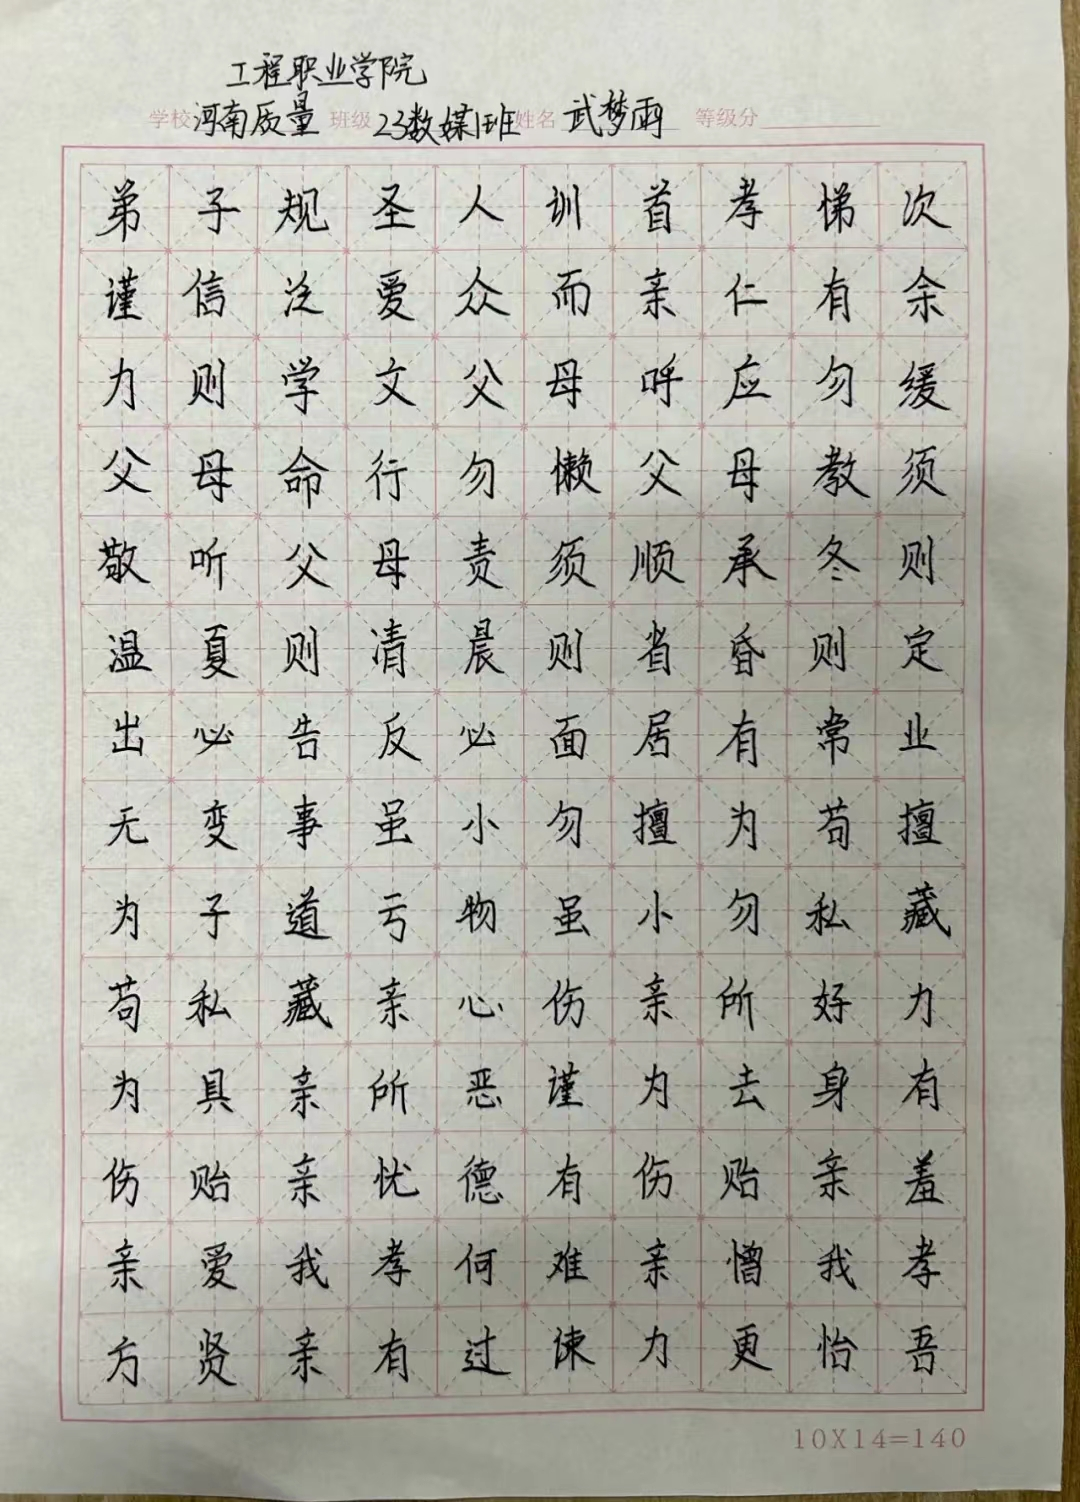 工程职业学院
学校 河南质量 班级 23数媒1班 姓名 武梦雨 等级分
弟子规圣人训首孝悌次
谨信泛爱众而亲仁有余
力则学文父母呼应勿缓
父母命行勿懒父母教须
敬听父母责须顺承冬则
温夏则清晨则省昏则定
出必告反必面居有常业
无变事虽小勿擅为苟擅
为子道亏物虽小勿私藏
苟私藏亲心伤亲所好力
为具亲所恶谨为去身有
伤贻亲忧德有伤贻亲羞
亲爱我孝何难亲憎我孝
方贤亲有过谏力更怡吾
10X14=140